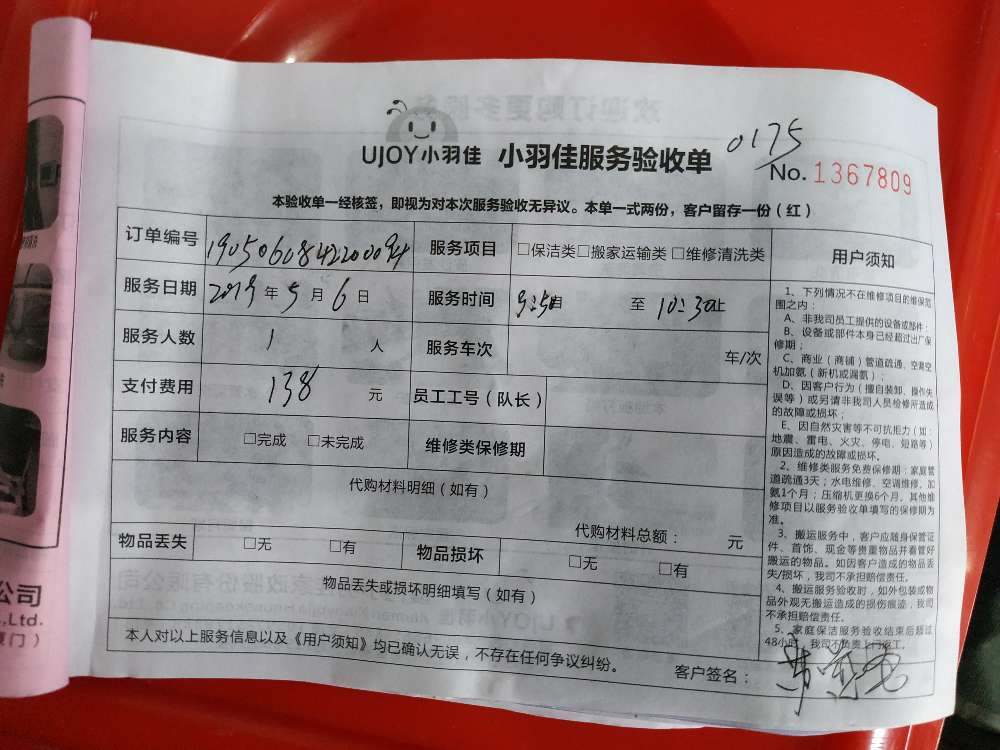 UJOY小羽佳 小羽佳服务验收单
0175
No. 1367809
本验收单一经核签，即视为对本次服务验收无异议。本单一式两份，客户留存一份（红）
订单编号 1905060842200094 服务项目 □保洁类□搬家运输类□维修清洗类
服务日期 2019年5月6日 服务时间 至 10:30止
服务人数 1 人 服务车次 车/次
支付费用 138 元 员工工号（队长）
服务内容 □完成 □未完成 维修类保修期
代购材料明细（如有）
代购材料总额： 元
物品丢失 □无 □有 物品损坏 □无 □有
物品丢失或损坏明细填写（如有）
本人对以上服务信息以及《用户须知》均已确认无误，不存在任何争议纠纷。
客户签名：
用户须知
1、下列情况不在维修项目的维保范
围之内：
A、非我司员工提供的设备或部件；
B、设备或部件本身已经超过出厂保
修期；
C、商业（商铺）管道疏通、空调空
机加氨（新机或漏氨）；
D、因客户行为（擅自装卸、操作失
误等）或另请非我司人员检修所造成
的故障或损坏；
E、因自然灾害等不可抗拒力（如：
地震、雷电、火灾、停电、短路等）
原因造成的故障或损坏。
2、维修类服务免费保修期：家庭管
道疏通3天；水电维修、空调维修、加
氨1个月；压缩机更换6个月。其他维
修项目以服务验收单填写的保修期为
准。
3、搬运服务中，客户应随身保管证
件、首饰、现金等贵重物品并看管好
搬运的物品。如因客户造成的物品丢
失/损坏，我司不承担赔偿责任。
4、搬运服务验收时，如外包装或物
品外观无搬运造成的损伤痕迹，我司
不承担赔偿责任。
5、家庭保洁服务验收结束后超过
48小时，我司不负责上门返工。
公司
,Ltd.
厦门）